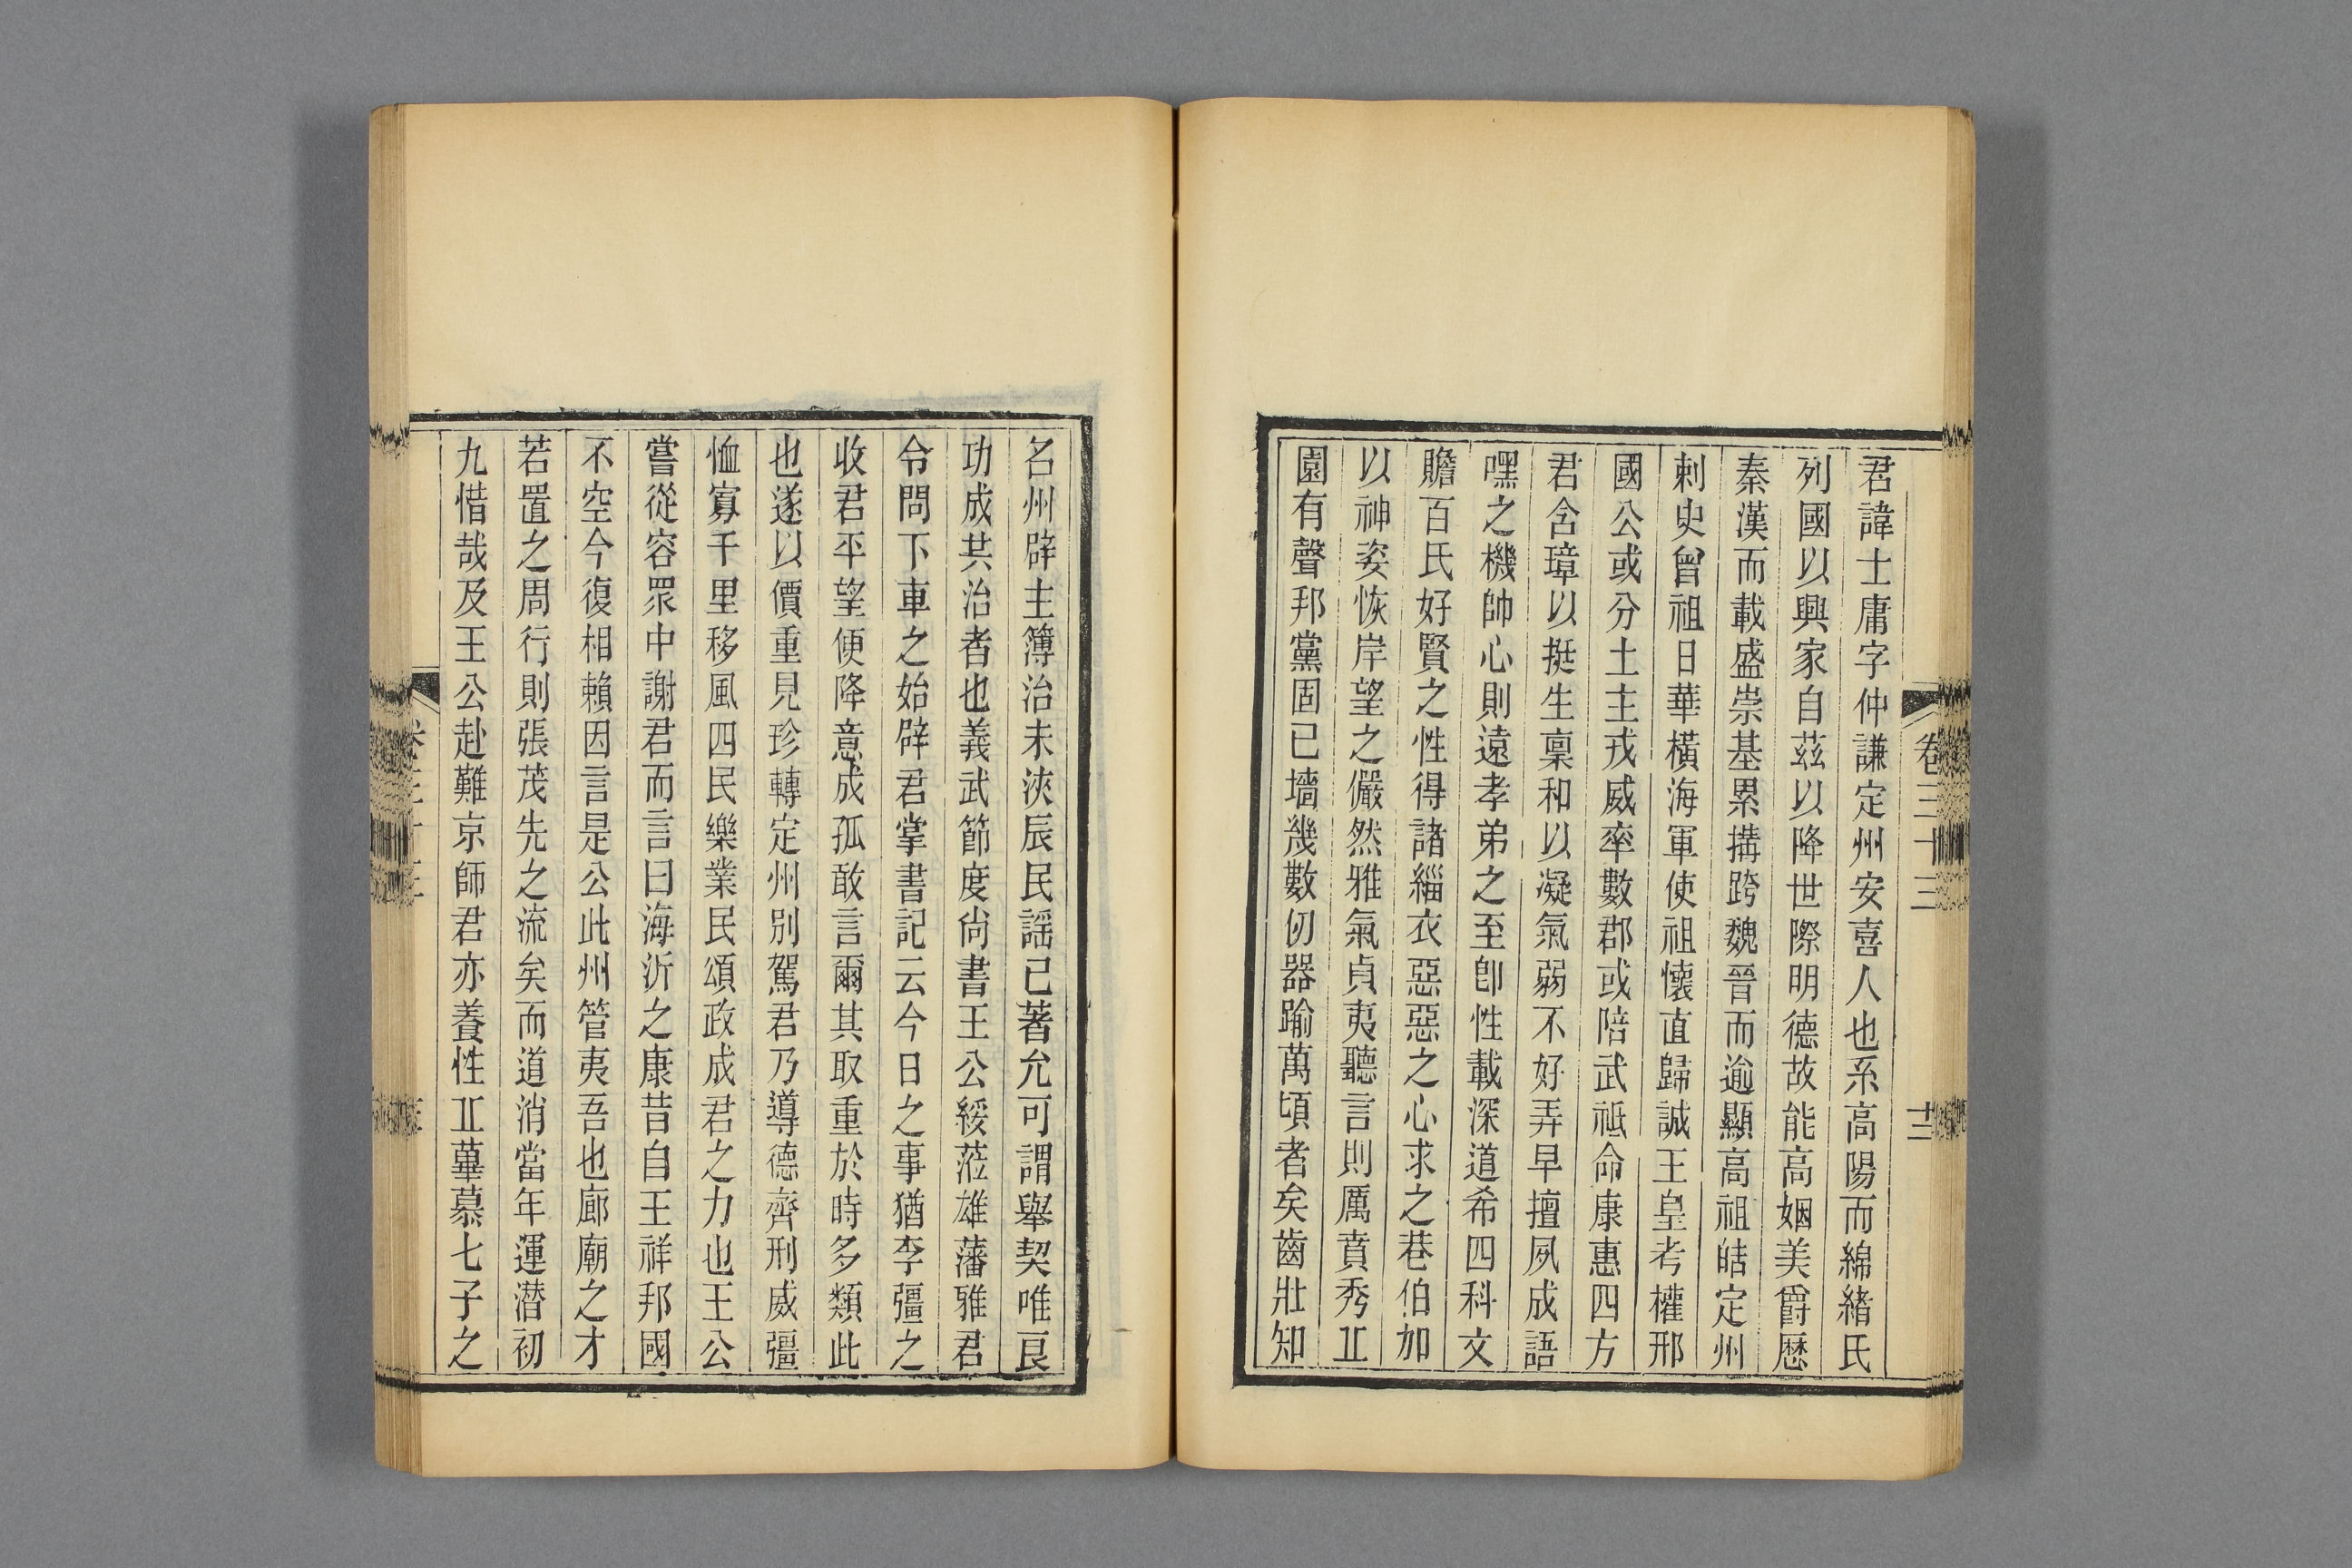 卷三十三
十二
君諱士庸字仲謙定州安喜人也系高陽而綿緒氏
列國以興家自茲以降世際明德故能高姻美爵歷
秦漢而載盛崇基累搆跨魏晉而逾顯高祖皓定州
刺史曾祖日華橫海軍使祖懷直歸誠王皇考權邢
國公或分土主戎威率數郡或陪武祗命康惠四方
君含璋以挺生稟和以凝氣弱不好弄早擅夙成語
嘿之機帥心則遠孝弟之至卽性載深道希四科文
贍百氏好賢之性得諸緇衣惡惡之心求之巷伯加
以神姿恢岸望之儼然雅氣貞夷聽言則厲賁秀丠
園有聲邦黨固已墻㡬數仞器踰萬頃者矣齒壯知
名州辟主簿治未浹辰民謡已著允可謂舉契唯良
功成共治者也義武節度尙書王公綏蒞雄藩雅君
令問下車之始辟君掌書記云今日之事猶李彊之
收君平望便降意成孤敢言爾其取重於時多類此
也遂以價重見珍轉定州別駕君乃導德齊刑威彊
恤寡千里移風四民樂業民頌政成君之力也王公
嘗從容眾中謝君而言曰海沂之康昔自王祥邦國
不空今復相賴因言是公此州管夷吾也廊廟之才
若置之周行則張茂先之流矣而道消當年運潛初
九惜哉及王公赴難京師君亦養性丠蓽慕七子之